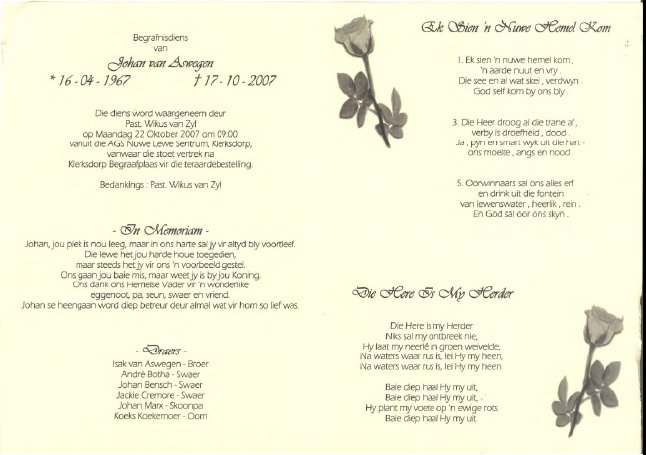 Begrafnisdiens
van
Johan van Aswegen
* 16 - 04 - 1967 † 17 - 10 - 2007
Die diens word waargeneem deur
Past. Wikus van Zyl
op Maandag 22 Oktober 2007 om 09:00
vanuit die AGS Nuwe Lewe Sentrum, Klerksdorp,
vanwaar die stoet vertrek na
Klerksdorp Begraafplaas vir die teraardebestelling.
Bedankings : Past. Wikus van Zyl
- In Memoriam -
Johan, jou plek is nou leeg, maar in ons harte sal jy vir altyd bly voortleef.
Die lewe het jou harde houe toegedien,
maar steeds het jy vir ons 'n voorbeeld gestel.
Ons gaan jou baie mis, maar weet jy is by jou Koning.
Ons dank ons Hemelse Vader vir 'n wonderlike
eggenoot, pa, seun, swaer en vriend.
Johan se heengaan word diep betreur deur almal wat vir hom so lief was.
- Draers -
Isak van Aswegen - Broer
André Botha - Swaer
Johan Bensch - Swaer
Jackie Cremore - Swaer
Johan Marx - Skoonpa
Koeks Koekemoer - Oom
Ek Sien 'n Nuwe Hemel Kom
1. Ek sien 'n nuwe hemel kom ,
'n aarde nuut en vry .
Die see en al wat skei , verdwyn .
God self kom by ons bly .
3. Die Heer droog al die trane af ,
verby is droefheid , dood .
Ja , pyn en smart wyk uit die hart -
ons moeite , angs en nood .
5. Oorwinnaars sal ons alles erf
en drink uit die fontein
van lewenswater , heerlik , rein .
En God sal oor ons skyn .
Die Here Is My Herder
Die Here is my Herder
Niks sal my ontbreek nie,
Hy laat my neerlê in groen weivelde,
Na waters waar rus is, lei Hy my heen,
Na waters waar rus is, lei Hy my heen.
Baie diep haal Hy my uit,
Baie diep haal Hy my uit,
Hy plant my voete op 'n ewige rots
Baie diep haal Hy my uit